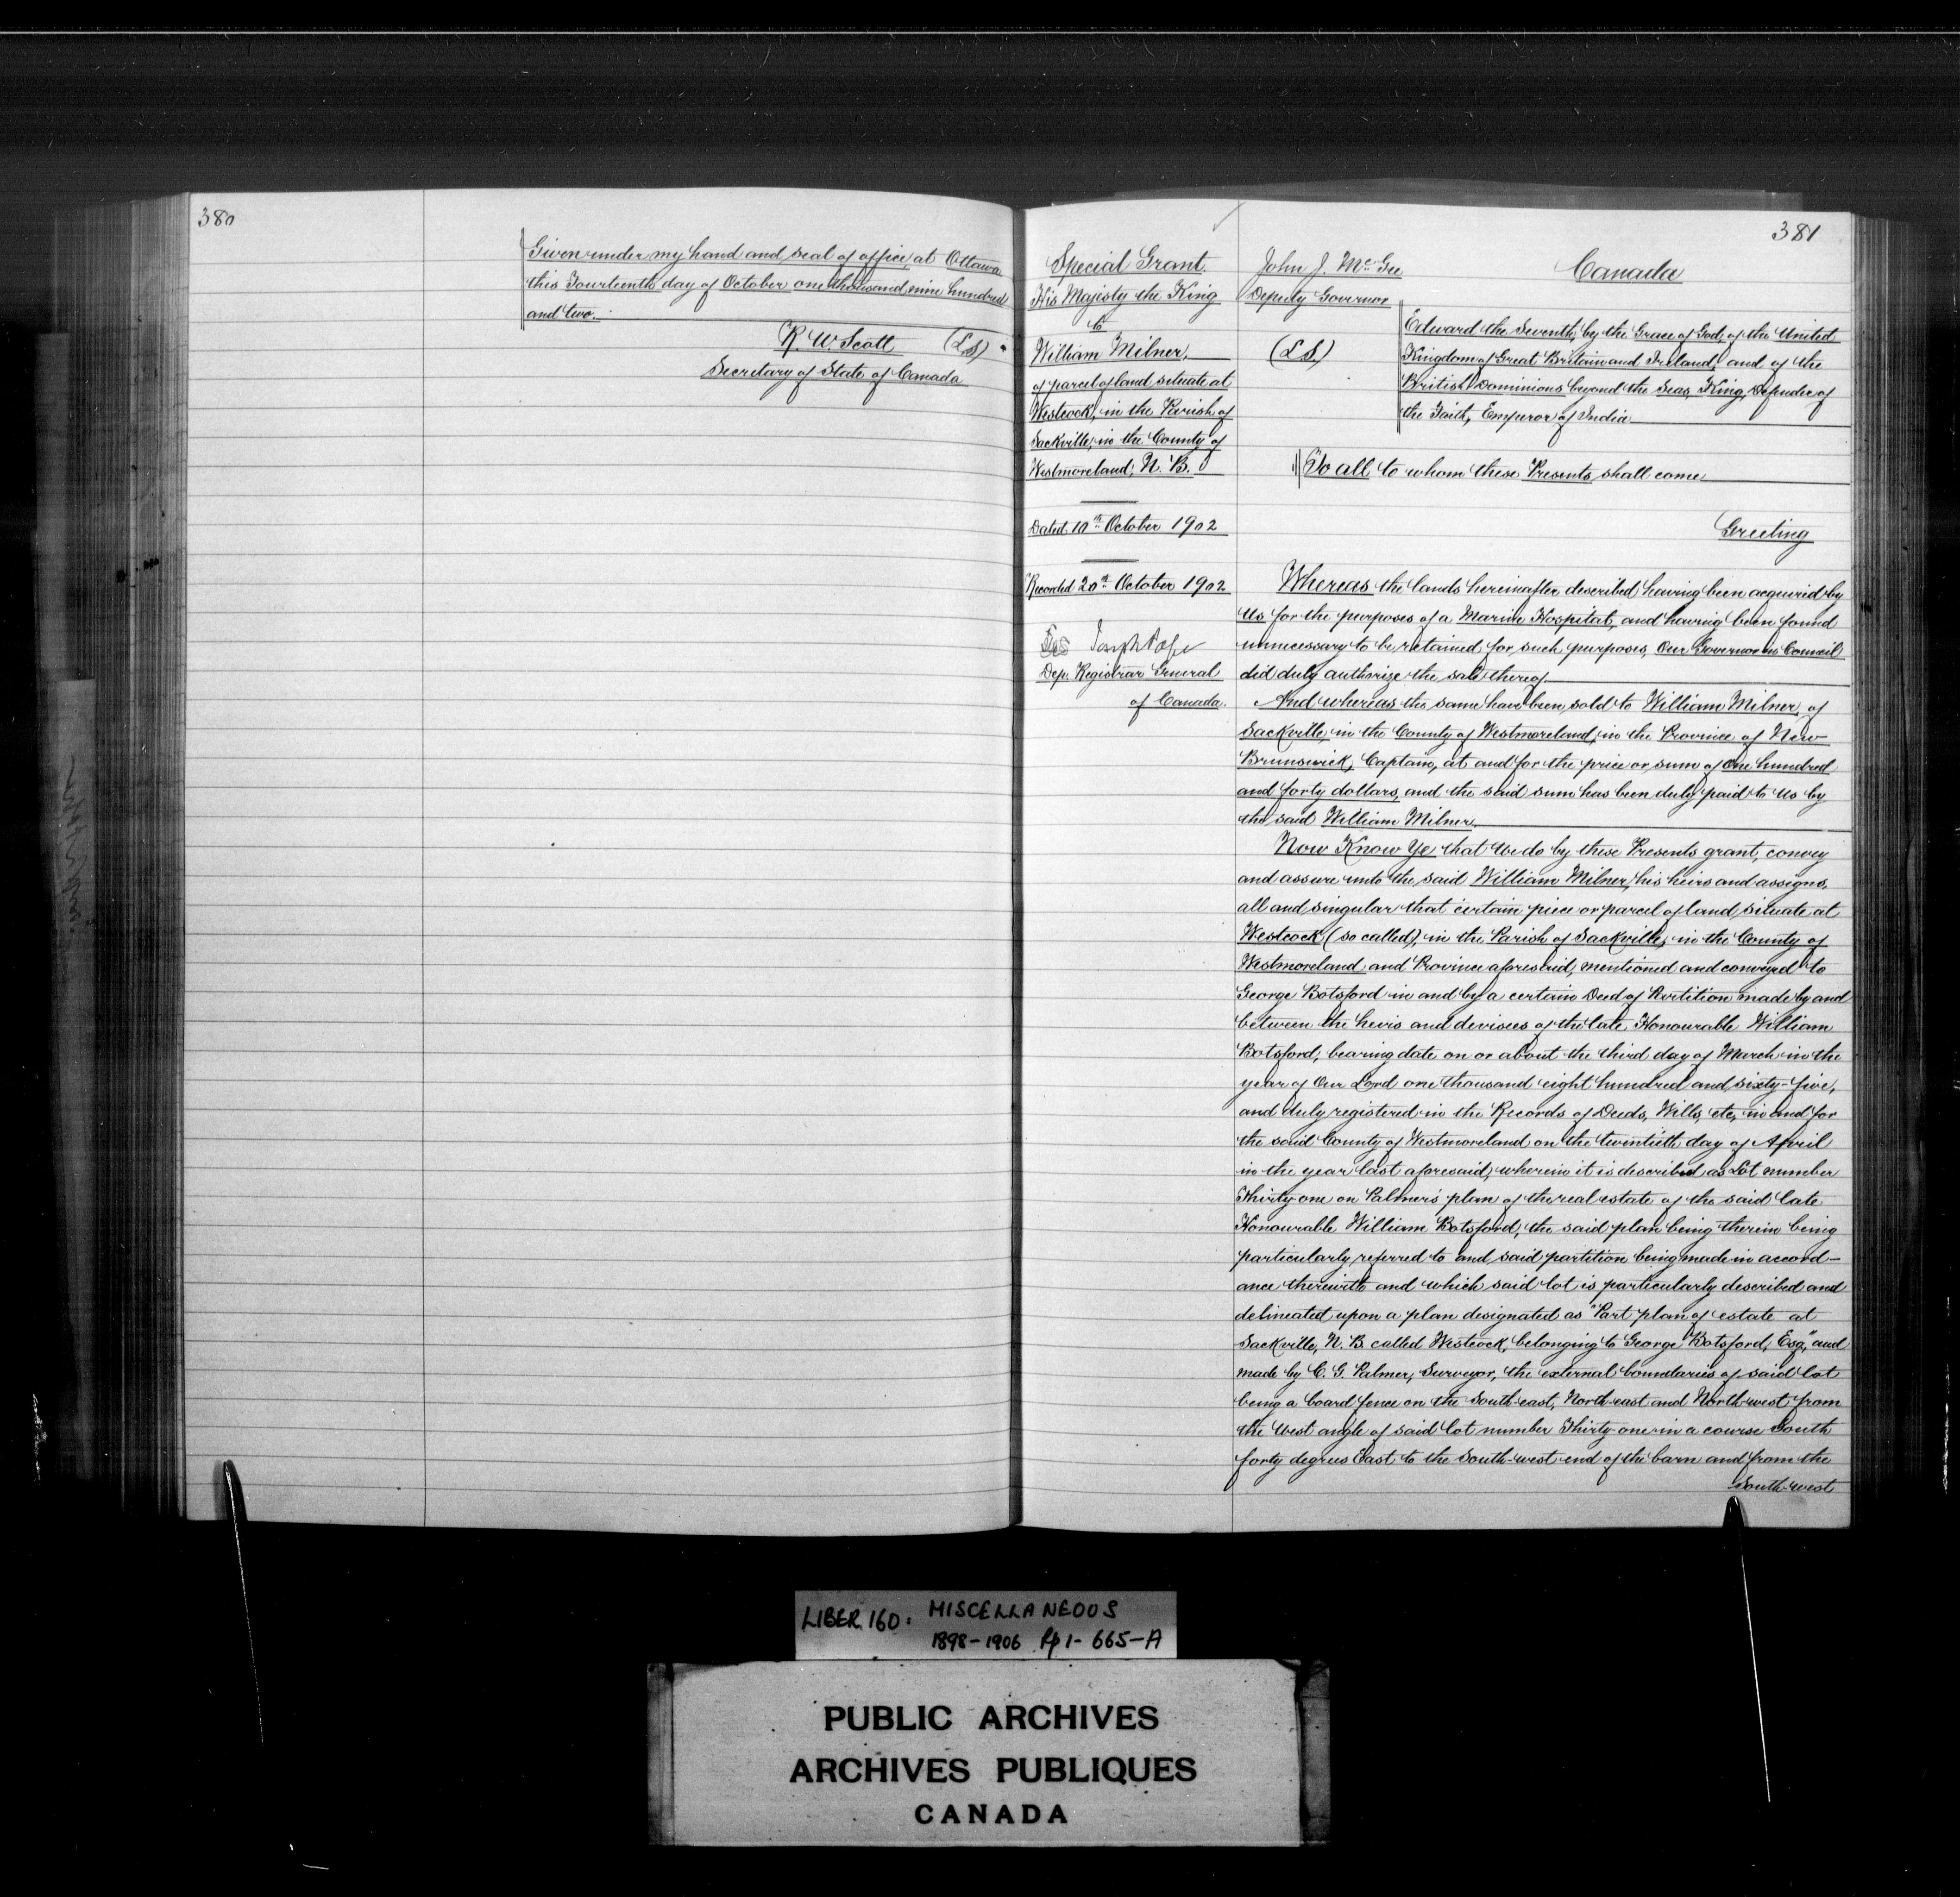 380
Given under my hand and seal of office, at Ottawa
this Fourteenth day of October one thousand nine hundred
and two.
R. W. Scott (LS)
Secretary of State of Canada
381
Special Grant.
His Majesty the King
to
William Milner,
of parcel of land situate at
Westcock, in the Parish of
Sackville, in the County of
Westmoreland, N. B.
Dated 10th October 1902
Recorded 20th October 1902
Joseph Pope
Dep. Registrar General
of Canada.
John J. McGee
Deputy Governor
(LS)
Canada
Edward the Seventh, by the Grace of God, of the United
Kingdom of Great Britain and Ireland, and of the
British Dominions beyond the Seas, King, Defender of
the Faith, Emperor of India
To all to whom these Presents shall come
Greeting
Whereas the lands hereinafter described having been acquired by
Us for the purposes of a Marine Hospital, and having been found
unnecessary to be retained for such purposes, Our Governor in Council
did duly authorize the sale thereof
And whereas the same have been sold to William Milner, of
Sackville, in the County of Westmoreland, in the Province of New
Brunswick, Captain, at and for the price or sum of One hundred
and forty dollars, and the said sum has been duly paid to Us by
the said William Milner.
Now Know Ye that We do by these Presents grant, convey
and assure unto the said William Milner, his heirs and assigns,
all and singular that certain piece or parcel of land, situate at
Westcock (so called), in the Parish of Sackville, in the County of
Westmoreland and Province aforesaid, mentioned and conveyed to
George Botsford in and by a certain Deed of Partition made by and
between the heirs and devisees of the late Honourable William
Botsford, bearing date on or about the third day of March in the
year of Our Lord one thousand eight hundred and sixty-five,
and duly registered in the Records of Deeds, Wills, etc, in and for
the said County of Westmoreland on the twentieth day of April
in the year last aforesaid, wherein it is described as Lot number
Thirty-one on Palmer's plan of the real estate of the said late
Honourable William Botsford, the said plan being therein being
particularly referred to and said partition being made in accord-
ance therewith and which said lot is particularly described and
delineated upon a plan designated as "Part plan of estate at
Sackville, N. B. called Westcock, belonging to George Botsford, Esq," and
made by C. G. Palmer, Surveyor, the external boundaries of said lot
being a board fence on the South-east, North-east and North-west from
the West angle of said lot number Thirty-one in a course South
forty degrees East to the South-west end of the barn and from the
South-west
LIBER 160: MISCELLANEOUS
1898-1906 Pp 1-665-A
PUBLIC ARCHIVES
ARCHIVES PUBLIQUES
CANADA